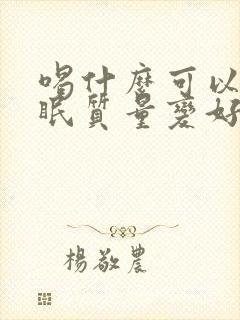 喝什麼可以
眠質量變好
楊敬農